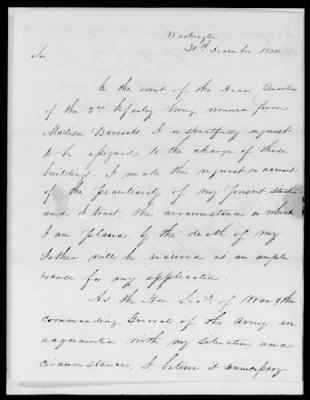 Washington
30th December
Sir,
In the event of the Head Quarters
of the 2nd Infantry being removed from
Madison Barracks I respectfully request
to be assigned to the charge of those
buildings. I make this request on account
of the peculiarity of my present situation
and I trust, the circumstances in which
I am placed by the death of my
Father will be received as an ample
excuse for my application.
As the Hon. Secty. of War & the
commanding General of the Army, are
acquainted with my situation and
circumstances, I believe it unnecessary